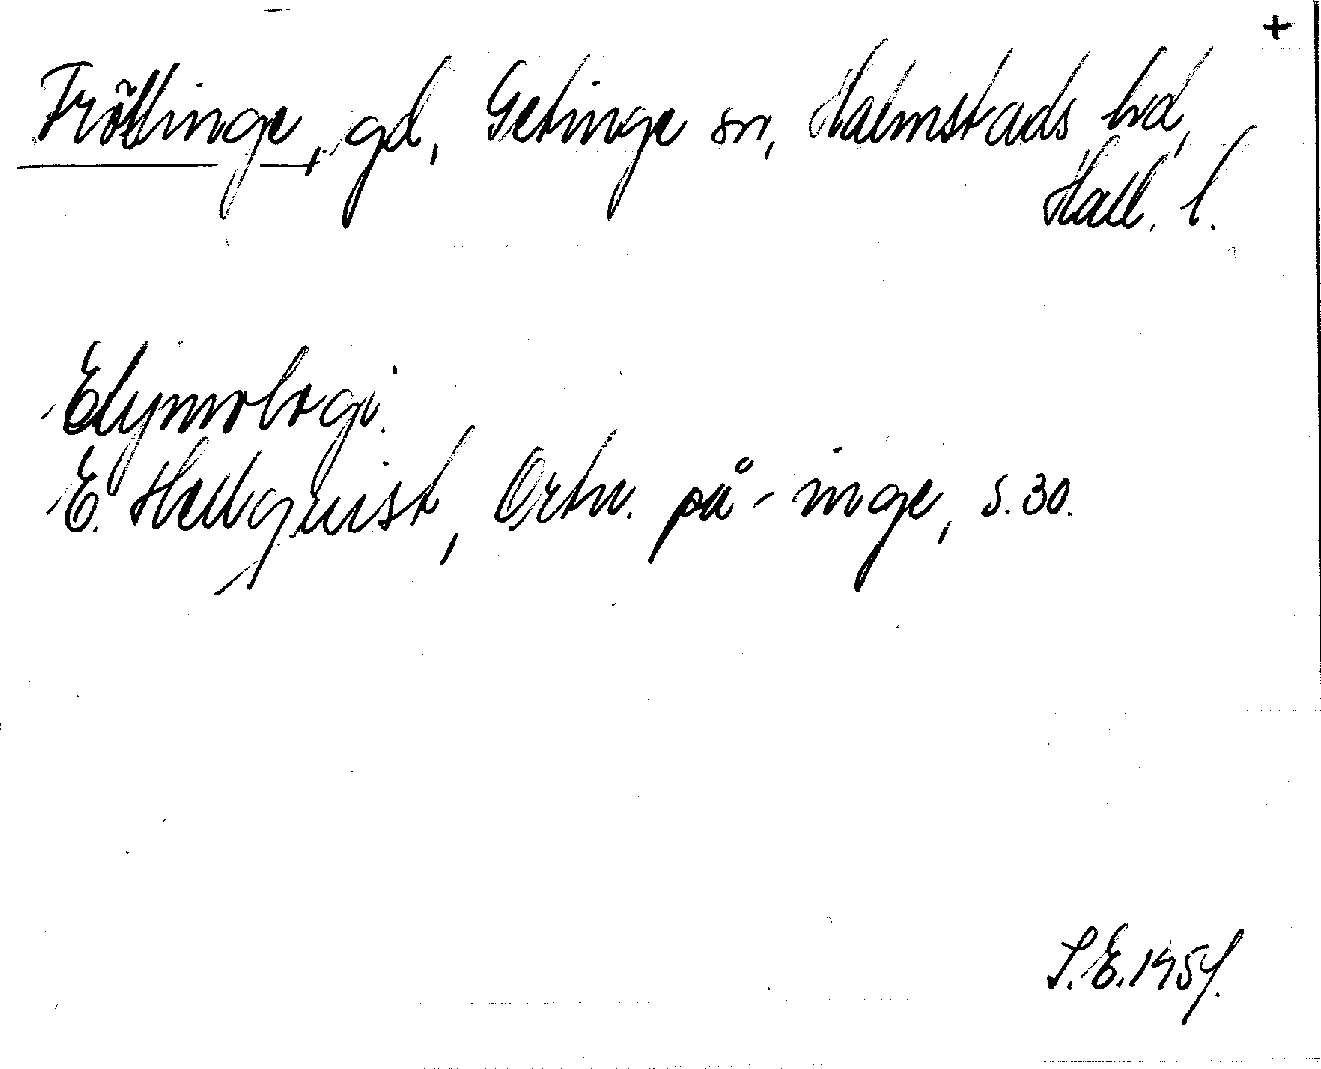 +
Fröllinge, gd, Getinge sn, Halmstads hd,
Hall. l.
Etymologi.
E. Hellquist, Ortn. på -inge, s. 30.
S.E. 1954.